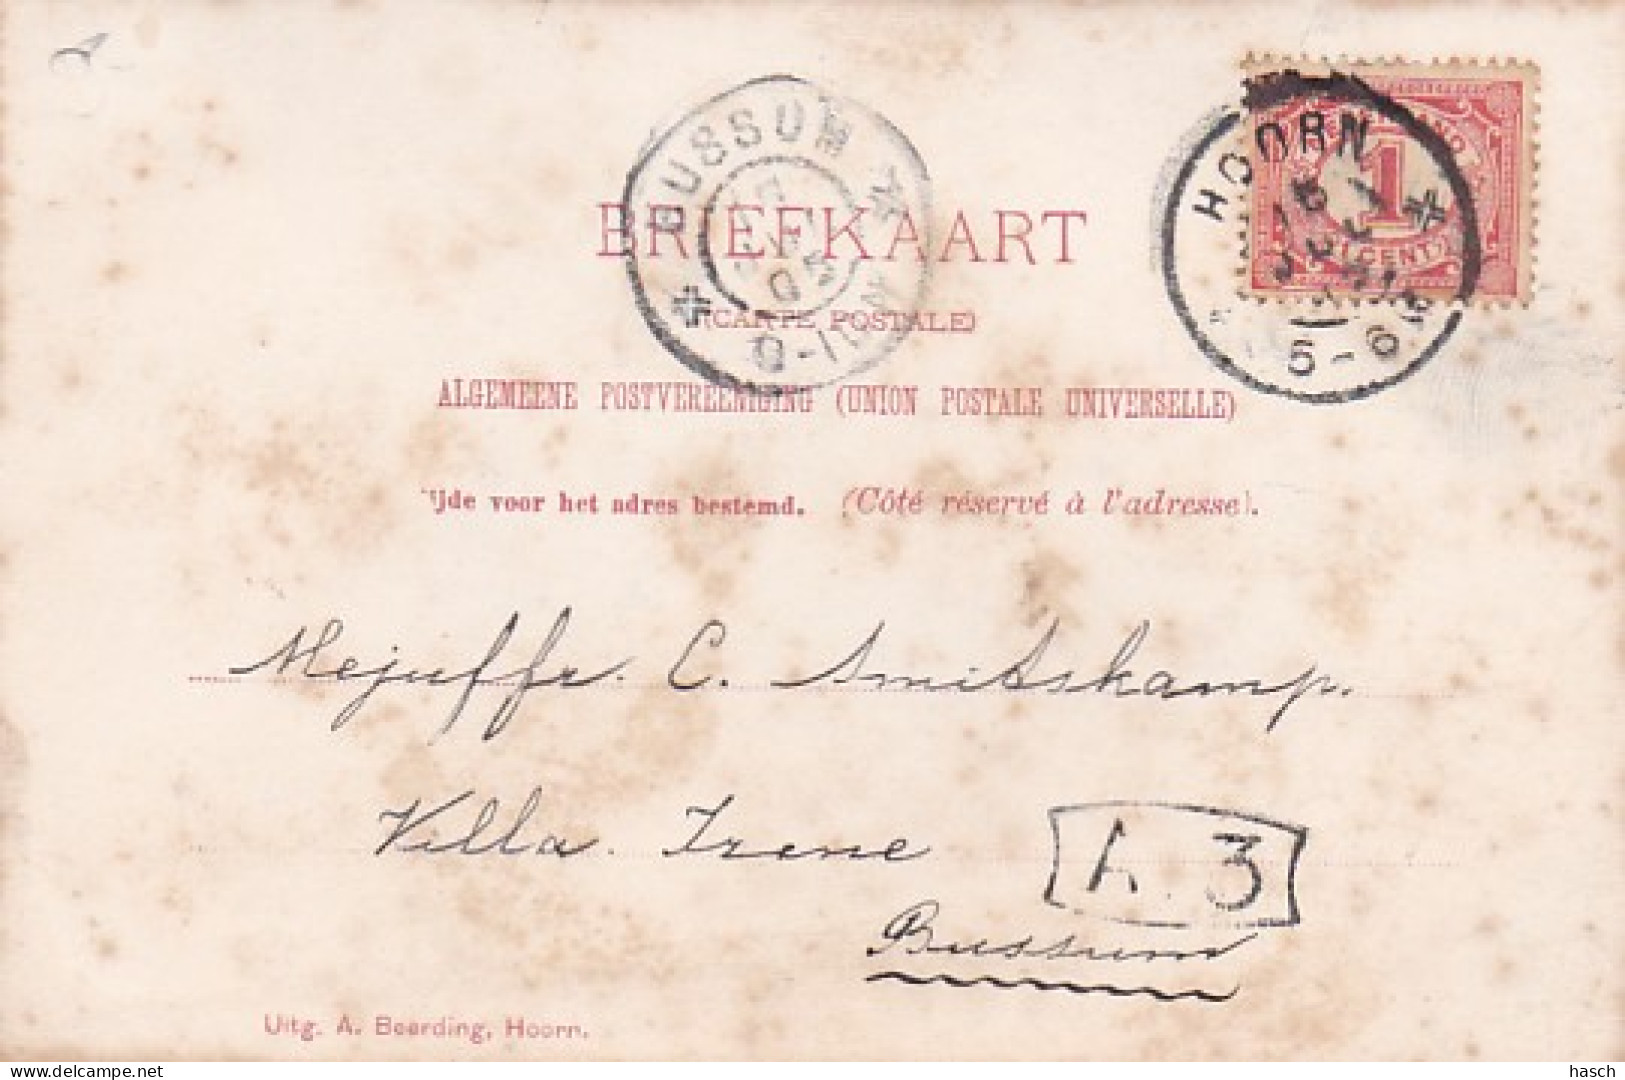 BUSSUM
05
HOORN
5-6
1
CENT
BRIEFKAART
(CARTE POSTALE)
ALGEMEENE POSTVEREENIGING (UNION POSTALE UNIVERSELLE)
ijde voor het adres bestemd. (Côté réservé à l'adresse).
Mejuffr. C. Smitskamp.
Villa Irene
h. 3
Bussum
Uitg. A. Beerding, Hoorn.
delcampe.net
hasch